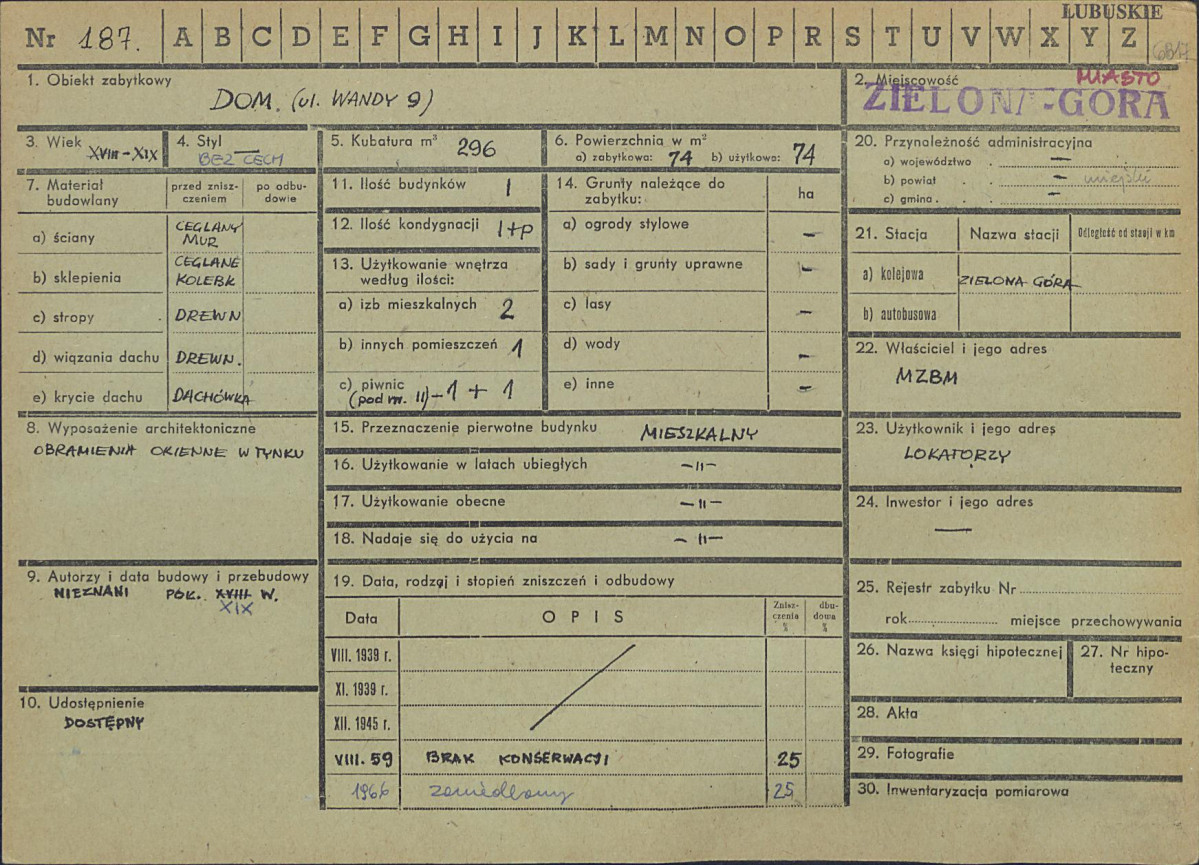 ŁUBUSKIE
Nr 187. A B C D E F G H I J K L M N O P R S T U V W X Y Z
1. Obiekt zabytkowy
DOM. (ul. WANDY 9)
2. Miejscowość
MIASTO
ZIELONA-GÓRA
3. Wiek XVIII-XIX
4. Styl
BEZ CECH
5. Kubatura m³ 296
6. Powierzchnia w m²
a) zabytkowa: 74 b) użytkowa: 74
7. Materiał budowlany
przed zniszczeniem
po odbudowie
a) ściany CEGLANY MUR
b) sklepienia CEGLANE KOLEBK
c) stropy DREWN
d) wiązania dachu DREWN.
e) krycie dachu DACHÓWKA
8. Wyposażenie architektoniczne
OBRAMIENIA OKIENNE W TYNKU
9. Autorzy i data budowy i przebudowy
NIEZNANI PÓŁ. XVIII W.
XIX
10. Udostępnienie
DOSTĘPNY
11. Ilość budynków 1
12. Ilość kondygnacji 1+p
13. Użytkowanie wnętrza
według ilości:
a) izb mieszkalnych 2
b) innych pomieszczeń 1
c) piwnic
(pod nr. 11) - 1 + 1
14. Grunty należące do
zabytku:
ha
a) ogrody stylowe –
b) sady i grunty uprawne –
c) lasy –
d) wody –
e) inne –
15. Przeznaczenie pierwotne budynku MIESZKALNY
16. Użytkowanie w latach ubiegłych –"–
17. Użytkowanie obecne –"–
18. Nadaje się do użycia na –"–
19. Data, rodzaj i stopień zniszczeń i odbudowy
Data OPIS Zniszczenia % dbudowa %
VIII. 1939 r.
XI. 1939 r.
XII. 1945 r.
VIII. 59 BRAK KONSERWACJI 25
1966 zaniedbany 25
20. Przynależność administracyjna
a) województwo . —
b) powiat . . — miejski
c) gmina . . —
21. Stacja Nazwa stacji Odległość od stacji w km
a) kolejowa ZIELONA GÓRA
b) autobusowa
22. Właściciel i jego adres
MZBM
23. Użytkownik i jego adres
LOKATORZY
24. Inwestor i jego adres
—
25. Rejestr zabytku Nr
rok miejsce przechowywania
26. Nazwa księgi hipotecznej
27. Nr hipoteczny
28. Akta
29. Fotografie
30. Inwentaryzacja pomiarowa